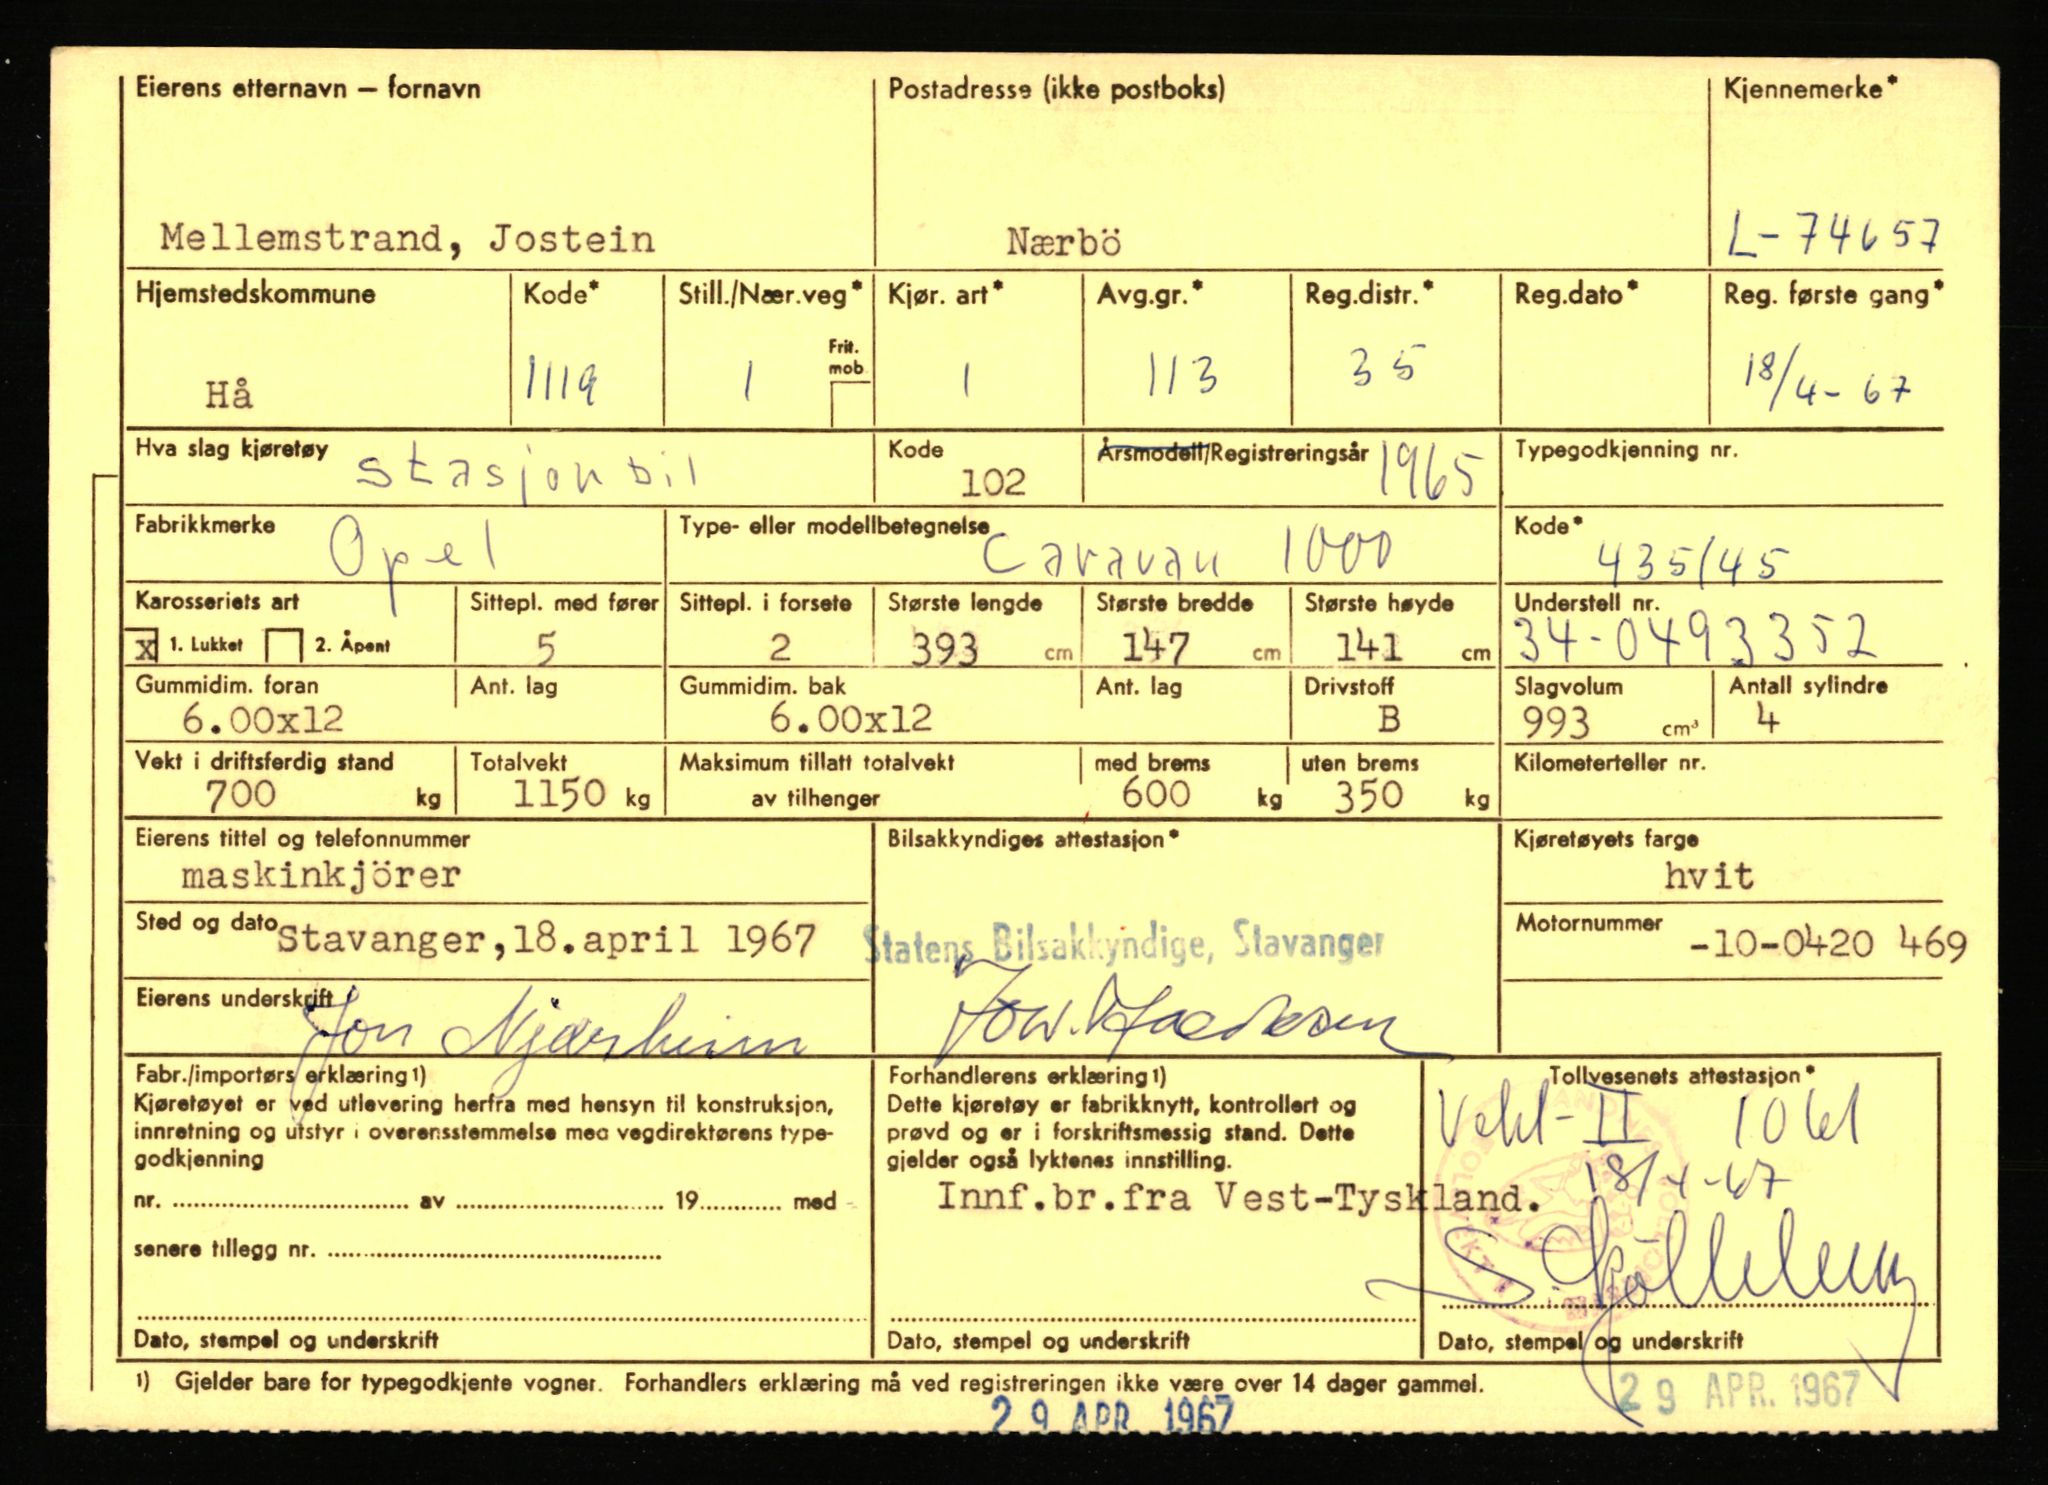 Eierens etternavn – fornavn
Postadresse (ikke postboks)
Kjennemerke*
Mellemstrand, Jostein
Nærbö
L-74657
Hjemstedskommune
Kode*
Still./Nær.veg*
Kjør. art*
Avg.gr.*
Reg.distr.*
Reg.dato*
Reg. første gang*
Frit. mob
Hå
1119
1
1
113
35
18/4-67
Hva slag kjøretøy
stasjonbil
Kode
102
Årsmodell/Registreringsår
1965
Typegodkjenning nr.
Fabrikkmerke
Opel
Type- eller modellbetegnelse
Caravan 1000
Kode*
435/45
Karosseriets art
Sittepl. med fører
Sittepl. i forsete
Største lengde
Største bredde
Største høyde
Understell nr.
x 1. Lukket 2. Åpent
5
2
393 cm
147 cm
141 cm
34-0493352
Gummidim. foran
Ant. lag
Gummidim. bak
Ant. lag
Drivstoff
Slagvolum
Antall sylindre
6.00x12
6.00x12
B
993 cm³
4
Vekt i driftsferdig stand
Totalvekt
Maksimum tillatt totalvekt
med brems
uten brems
Kilometerteller nr.
700 kg
1150 kg
av tilhenger
600 kg
350 kg
Eierens tittel og telefonnummer
Bilsakkyndiges attestasjon*
Kjøretøyets farge
maskinkjörer
hvit
Sted og dato
Stavanger,18.april 1967
Statens Bilsakkyndige, Stavanger
Motornummer
-10-0420 469
Eierens underskrift
Jon Njærheim
Fabr./importørs erklæring1)
Kjøretøyet er ved utlevering herfra med hensyn til konstruksjon,
innretning og utstyr i overensstemmelse med vegdirektørens type-
godkjenning
nr. av 19 med
senere tillegg nr.
Dato, stempel og underskrift
Forhandlerens erklæring1)
Dette kjøretøy er fabrikknytt, kontrollert og
prøvd og er i forskriftsmessig stand. Dette
gjelder også lyktenes innstilling.
Innf.br.fra Vest-Tyskland.
Dato, stempel og underskrift
Tollvesenets attestasjon*
Vekt-II 1061
18/4-67
Dato, stempel og underskrift
1) Gjelder bare for typegodkjente vogner. Forhandlers erklæring må ved registreringen ikke være over 14 dager gammel.
29 APR. 1967
29 APR. 1967